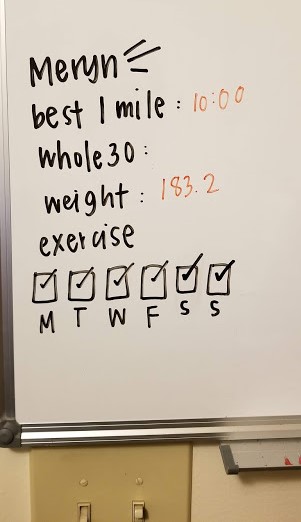 Meryn
best 1 mile : 10:00
whole30 :
weight : 183.2
exercise
M T W F S S